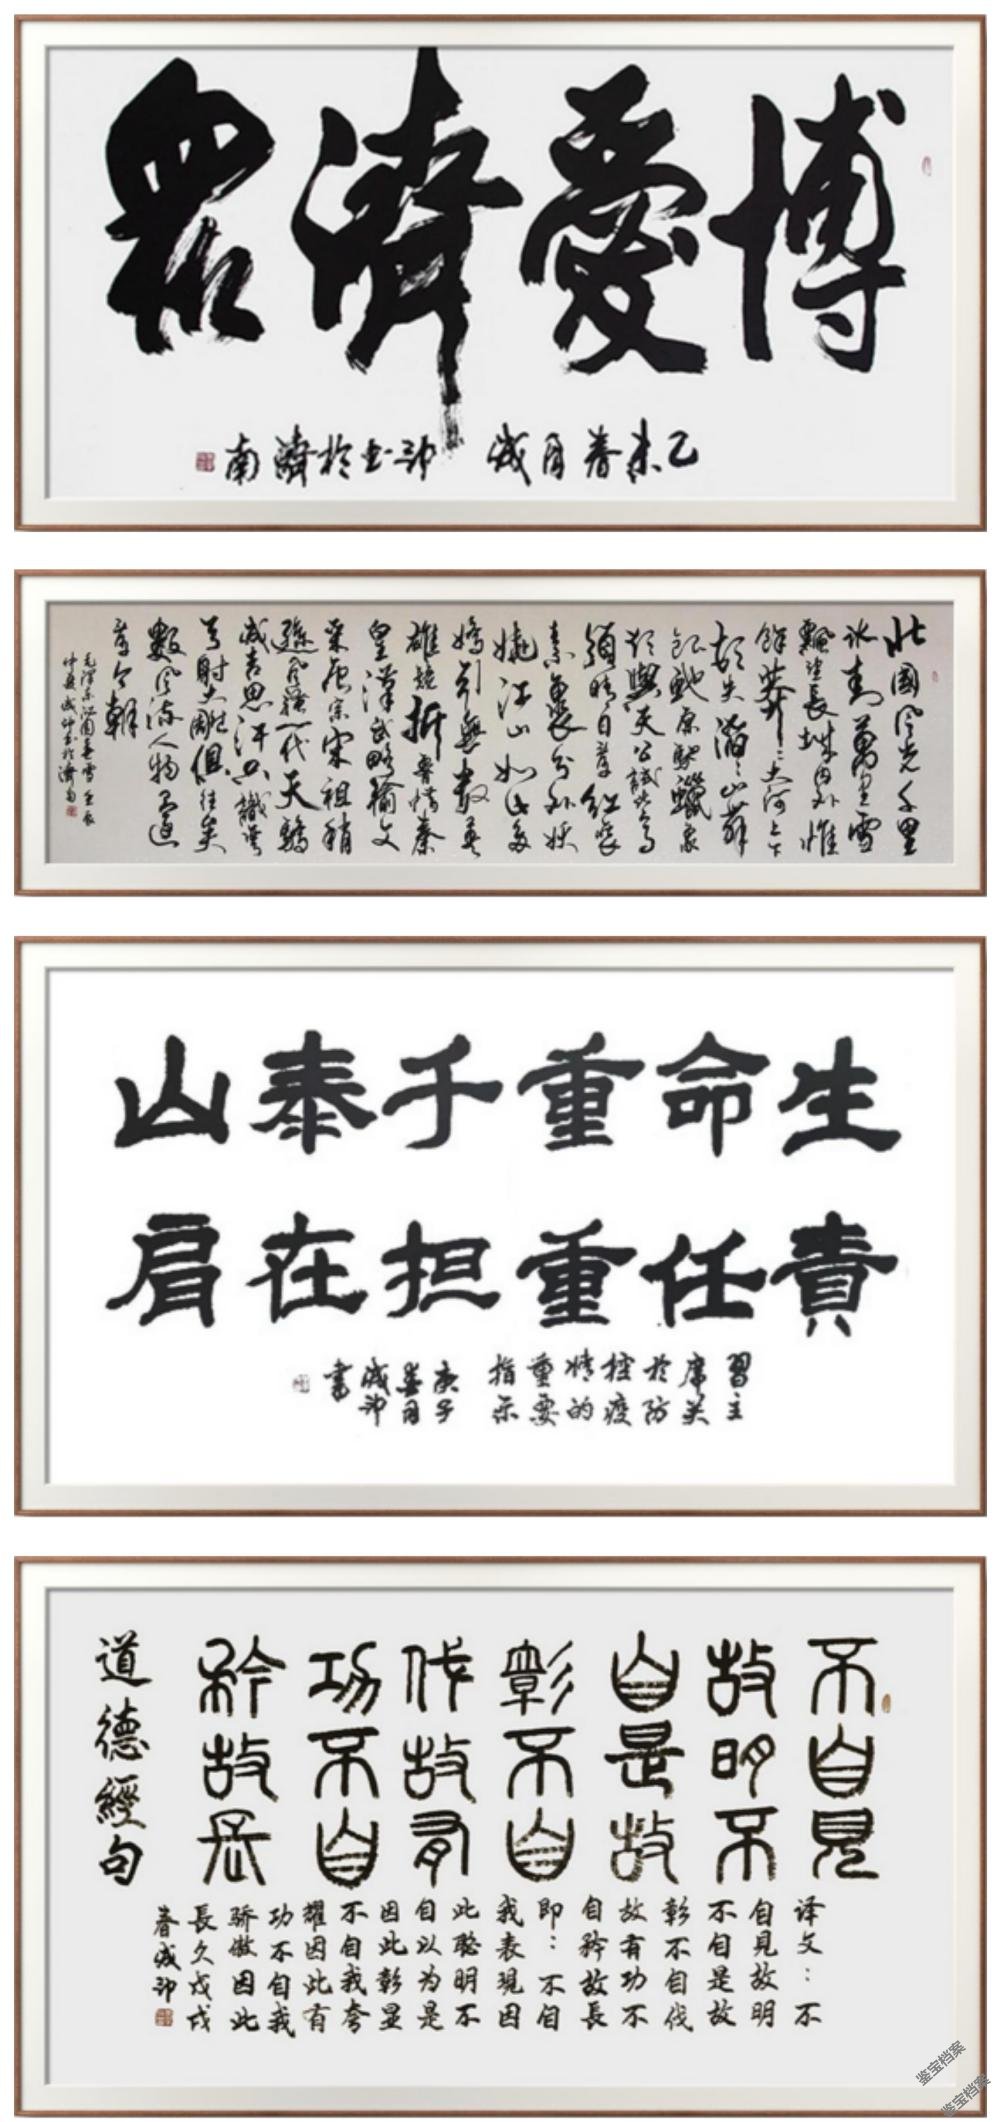 博愛濟眾
乙未春月
书於濟南
北國風光千里
冰封萬里雪
飄望長城内外惟
餘莽〻大河上下
頓失滔〻山舞
銀蛇原馳蠟象
欲與天公試比高
須晴日看紅裝
素裹分外妖
嬈江山如此多
嬌引無數英
雄競折腰惜秦
皇漢武略輸文
采唐宗宋祖稍
遜風騷一代天驕
成吉思汗只識彎
弓射大雕俱往矣
數風流人物還
看今朝
毛澤东沁園春雪壬辰
仲夏书於濟南
生命重于泰山
責任重担在肩
習主
席关
於防
控疫
情的
重要
指示
庚子
春月
書
不自見
故明不
自是故
彰不自
伐故有
功不自
矜故長
道德經句
译文：不
自見故明
不自是故
彰不自伐
故有功不
自矜故長
即：不自
我表現因
此聪明不
自以为是
因此彰显
不自我夸
耀因此有
功不自我
骄傲因此
長久戊戌
春
鉴宝档案
鉴宝档案